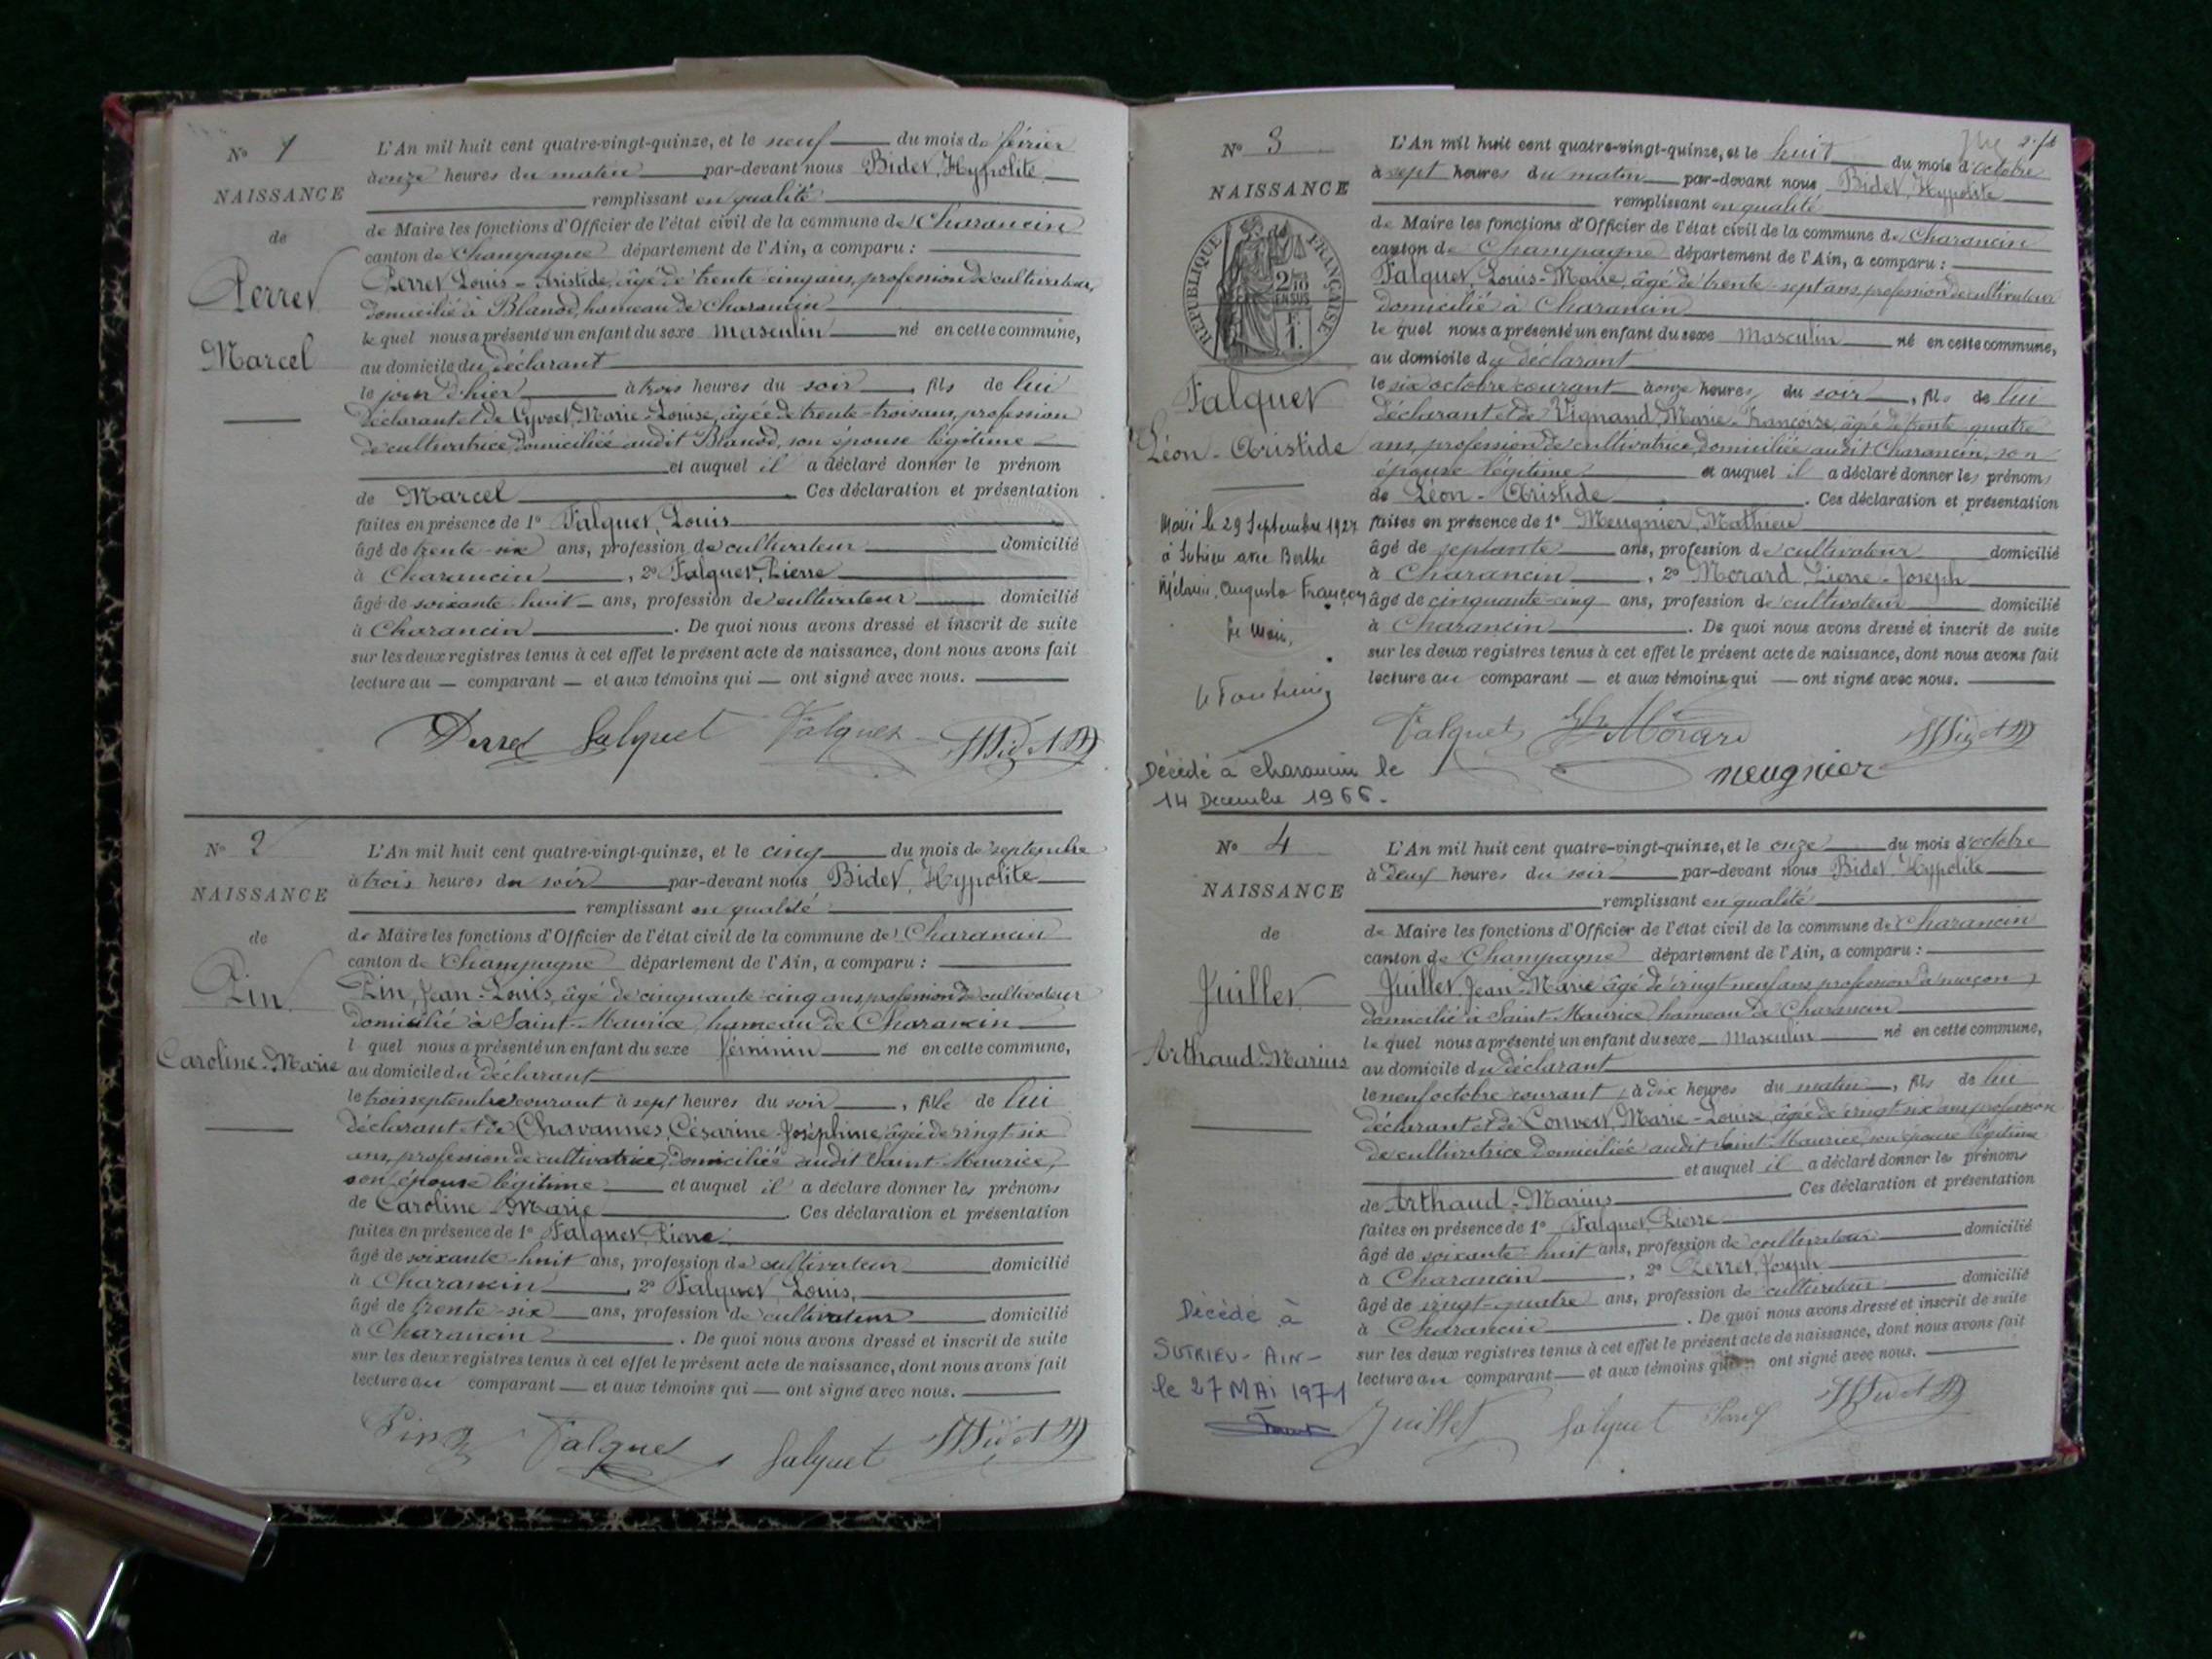 N° 1
NAISSANCE
de
Perret
Marcel
L'An mil huit cent quatre-vingt-quinze, et le neuf du mois de février
à onze heures du matin par-devant nous Bidet, Hypolite
remplissant en qualité
de Maire les fonctions d'Officier de l'état civil de la commune de Charancin
canton de Champagne département de l'Ain, a comparu :
Perret Louis-Aristide, âgé de trente-cinq ans, profession de cultivateur,
domicilié à Blanod, hameau de Charancin
lequel nous a présenté un enfant du sexe masculin né en cette commune,
au domicile du déclarant
le jour d'hier à trois heures du soir, fils de lui
déclarant et de Marie-Louise, âgée de trente-trois ans, profession
de cultivatrice, domiciliée audit Blanod, son épouse légitime
et auquel il a déclaré donner le prénom
de Marcel Ces déclaration et présentation
faites en présence de 1° Falquet, Louis
âgé de trente-six ans, profession de cultivateur domicilié
à Charancin, 2° Falquet, Pierre
âgé de soixante-huit ans, profession de cultivateur domicilié
à Charancin. De quoi nous avons dressé et inscrit de suite
sur les deux registres tenus à cet effet le présent acte de naissance, dont nous avons fait
lecture au comparant et aux témoins qui ont signé avec nous.
Perret Falquet Falquet Bidet
N° 2
NAISSANCE
de
Pin
Caroline-Marie
L'An mil huit cent quatre-vingt-quinze, et le cinq du mois de septembre
à trois heures du soir par-devant nous Bidet, Hypolite
remplissant en qualité
de Maire les fonctions d'Officier de l'état civil de la commune de Charancin
canton de Champagne département de l'Ain, a comparu :
Pin, Jean-Louis, âgé de cinquante-cinq ans, profession de cultivateur
domicilié à Saint-Maurice, hameau de Charancin
l quel nous a présenté un enfant du sexe féminin né en cette commune,
au domicile du déclarant
le trois septembre courant à sept heures du soir, fille de lui
déclarant et de Chavannes, Césarine-Joséphine, âgée de vingt-six
ans, profession de cultivatrice, domiciliée audit Saint-Maurice,
son épouse légitime et auquel il a déclaré donner les prénoms
de Caroline-Marie Ces déclaration et présentation
faites en présence de 1° Falquet, Pierre
âgé de soixante-huit ans, profession de cultivateur domicilié
à Charancin, 2° Falquet, Louis,
âgé de trente-six ans, profession de cultivateur domicilié
à Charancin. De quoi nous avons dressé et inscrit de suite
sur les deux registres tenus à cet effet le présent acte de naissance, dont nous avons fait
lecture au comparant et aux témoins qui ont signé avec nous.
Pin Falquet Falquet Bidet
N° 3
NAISSANCE
de
RÉPUBLIQUE FRANÇAISE
2/10 EN SUS
F. 1.
Falquet
Léon-Aristide
Marié le 29 Septembre 1927
à Sutrieu avec Berthe
Mélanie, Augusta Françon
Le Maire,
Décédé à Charancin le
14 Décembre 1966.
L'An mil huit cent quatre-vingt-quinze, et le huit du mois d'octobre
à sept heures du matin par-devant nous Bidet, Hypolite
remplissant en qualité
de Maire les fonctions d'Officier de l'état civil de la commune de Charancin
canton de Champagne département de l'Ain, a comparu :
Falquet, Louis-Marie, âgé de trente-sept ans, profession de cultivateur
domicilié à Charancin
lequel nous a présenté un enfant du sexe masculin né en cette commune,
au domicile du déclarant
le six octobre courant à onze heures du soir, fils de lui
déclarant et de Vignand, Marie-Françoise, âgée de trente-quatre
ans, profession de cultivatrice, domiciliée audit Charancin, son
épouse légitime et auquel il a déclaré donner les prénoms
de Léon-Aristide. Ces déclaration et présentation
faites en présence de 1° Meugnier, Mathieu
âgé de septante ans, profession de cultivateur domicilié
à Charancin, 2° Morard, Pierre-Joseph
âgé de cinquante-cinq ans, profession de cultivateur domicilié
à Charancin. De quoi nous avons dressé et inscrit de suite
sur les deux registres tenus à cet effet le présent acte de naissance, dont nous avons fait
lecture au comparant et aux témoins qui ont signé avec nous.
Falquet Morard Bidet
meugnier
N° 4
NAISSANCE
de
Juillet
Arthaud-Marius
Décédé à
SUTRIEU-AIN-
le 27 MAI 1971
L'An mil huit cent quatre-vingt-quinze, et le onze du mois d'octobre
à deux heures du soir par-devant nous Bidet, Hypolite
remplissant en qualité
de Maire les fonctions d'Officier de l'état civil de la commune de Charancin
canton de Champagne département de l'Ain, a comparu :
Juillet, Jean-Marie âgé de vingt-neuf ans profession de maçon
domicilié à Saint-Maurice hameau de Charancin
lequel nous a présenté un enfant du sexe Masculin né en cette commune,
au domicile du déclarant
le neuf octobre courant, à dix heures du matin, fils de lui
déclarant et de Convert, Marie-Louise, âgée de vingt-six ans profession
de cultivatrice domiciliée audit Saint-Maurice, son épouse légitime
et auquel il a déclaré donner les prénoms
de Arthaud-Marius Ces déclaration et présentation
faites en présence de 1° Falquet, Pierre
âgé de soixante-huit ans, profession de cultivateur domicilié
à Charancin, 2° Perret, Joseph
âgé de vingt-quatre ans, profession de cultivateur domicilié
à Charancin. De quoi nous avons dressé et inscrit de suite
sur les deux registres tenus à cet effet le présent acte de naissance, dont nous avons fait
lecture au comparant et aux témoins qui ont signé avec nous.
Juillet Falquet Perret Bidet